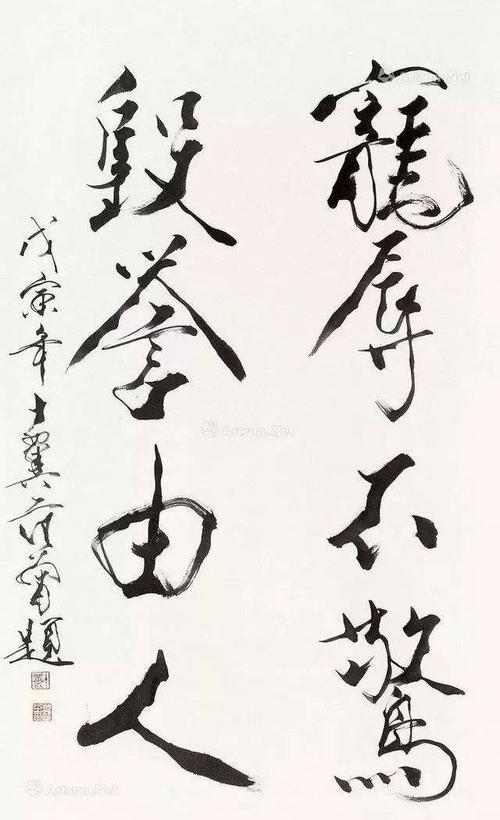 寵辱不驚
毀譽由人
戊寅年十翼范曾題
Artron.Net
Artron.Net
Artron.Net